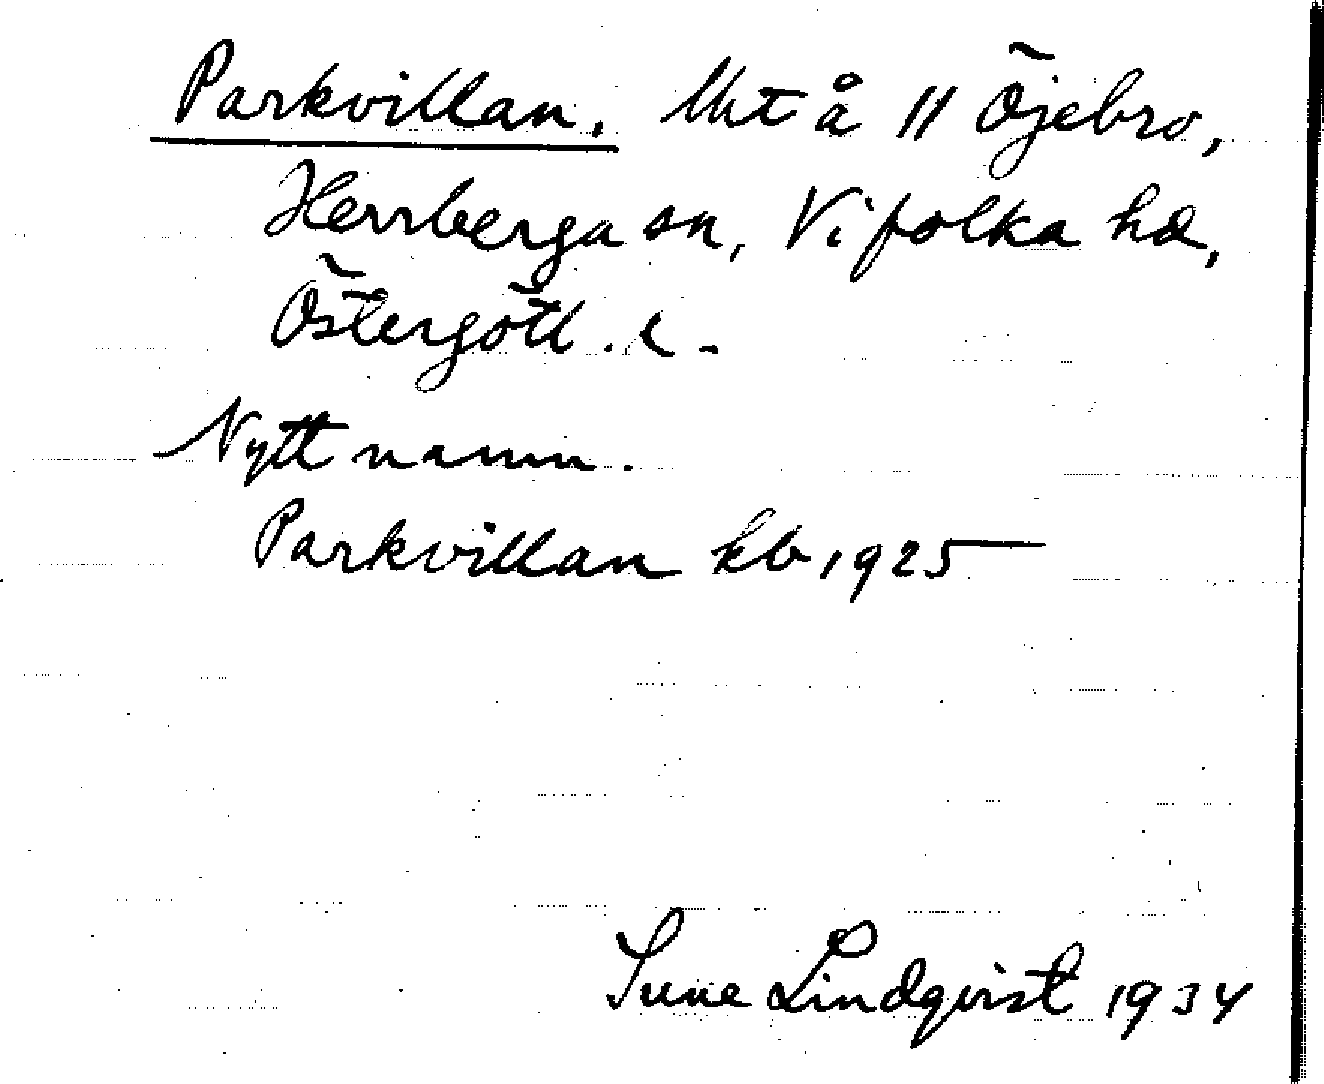 Parkvillan. Uht å 11 Öjebro,
Herrberga sn, Vifolka hd,
Östergötl. l.
Nytt namn.
Parkvillan kb, 1925
Sune Lindqvist 1934